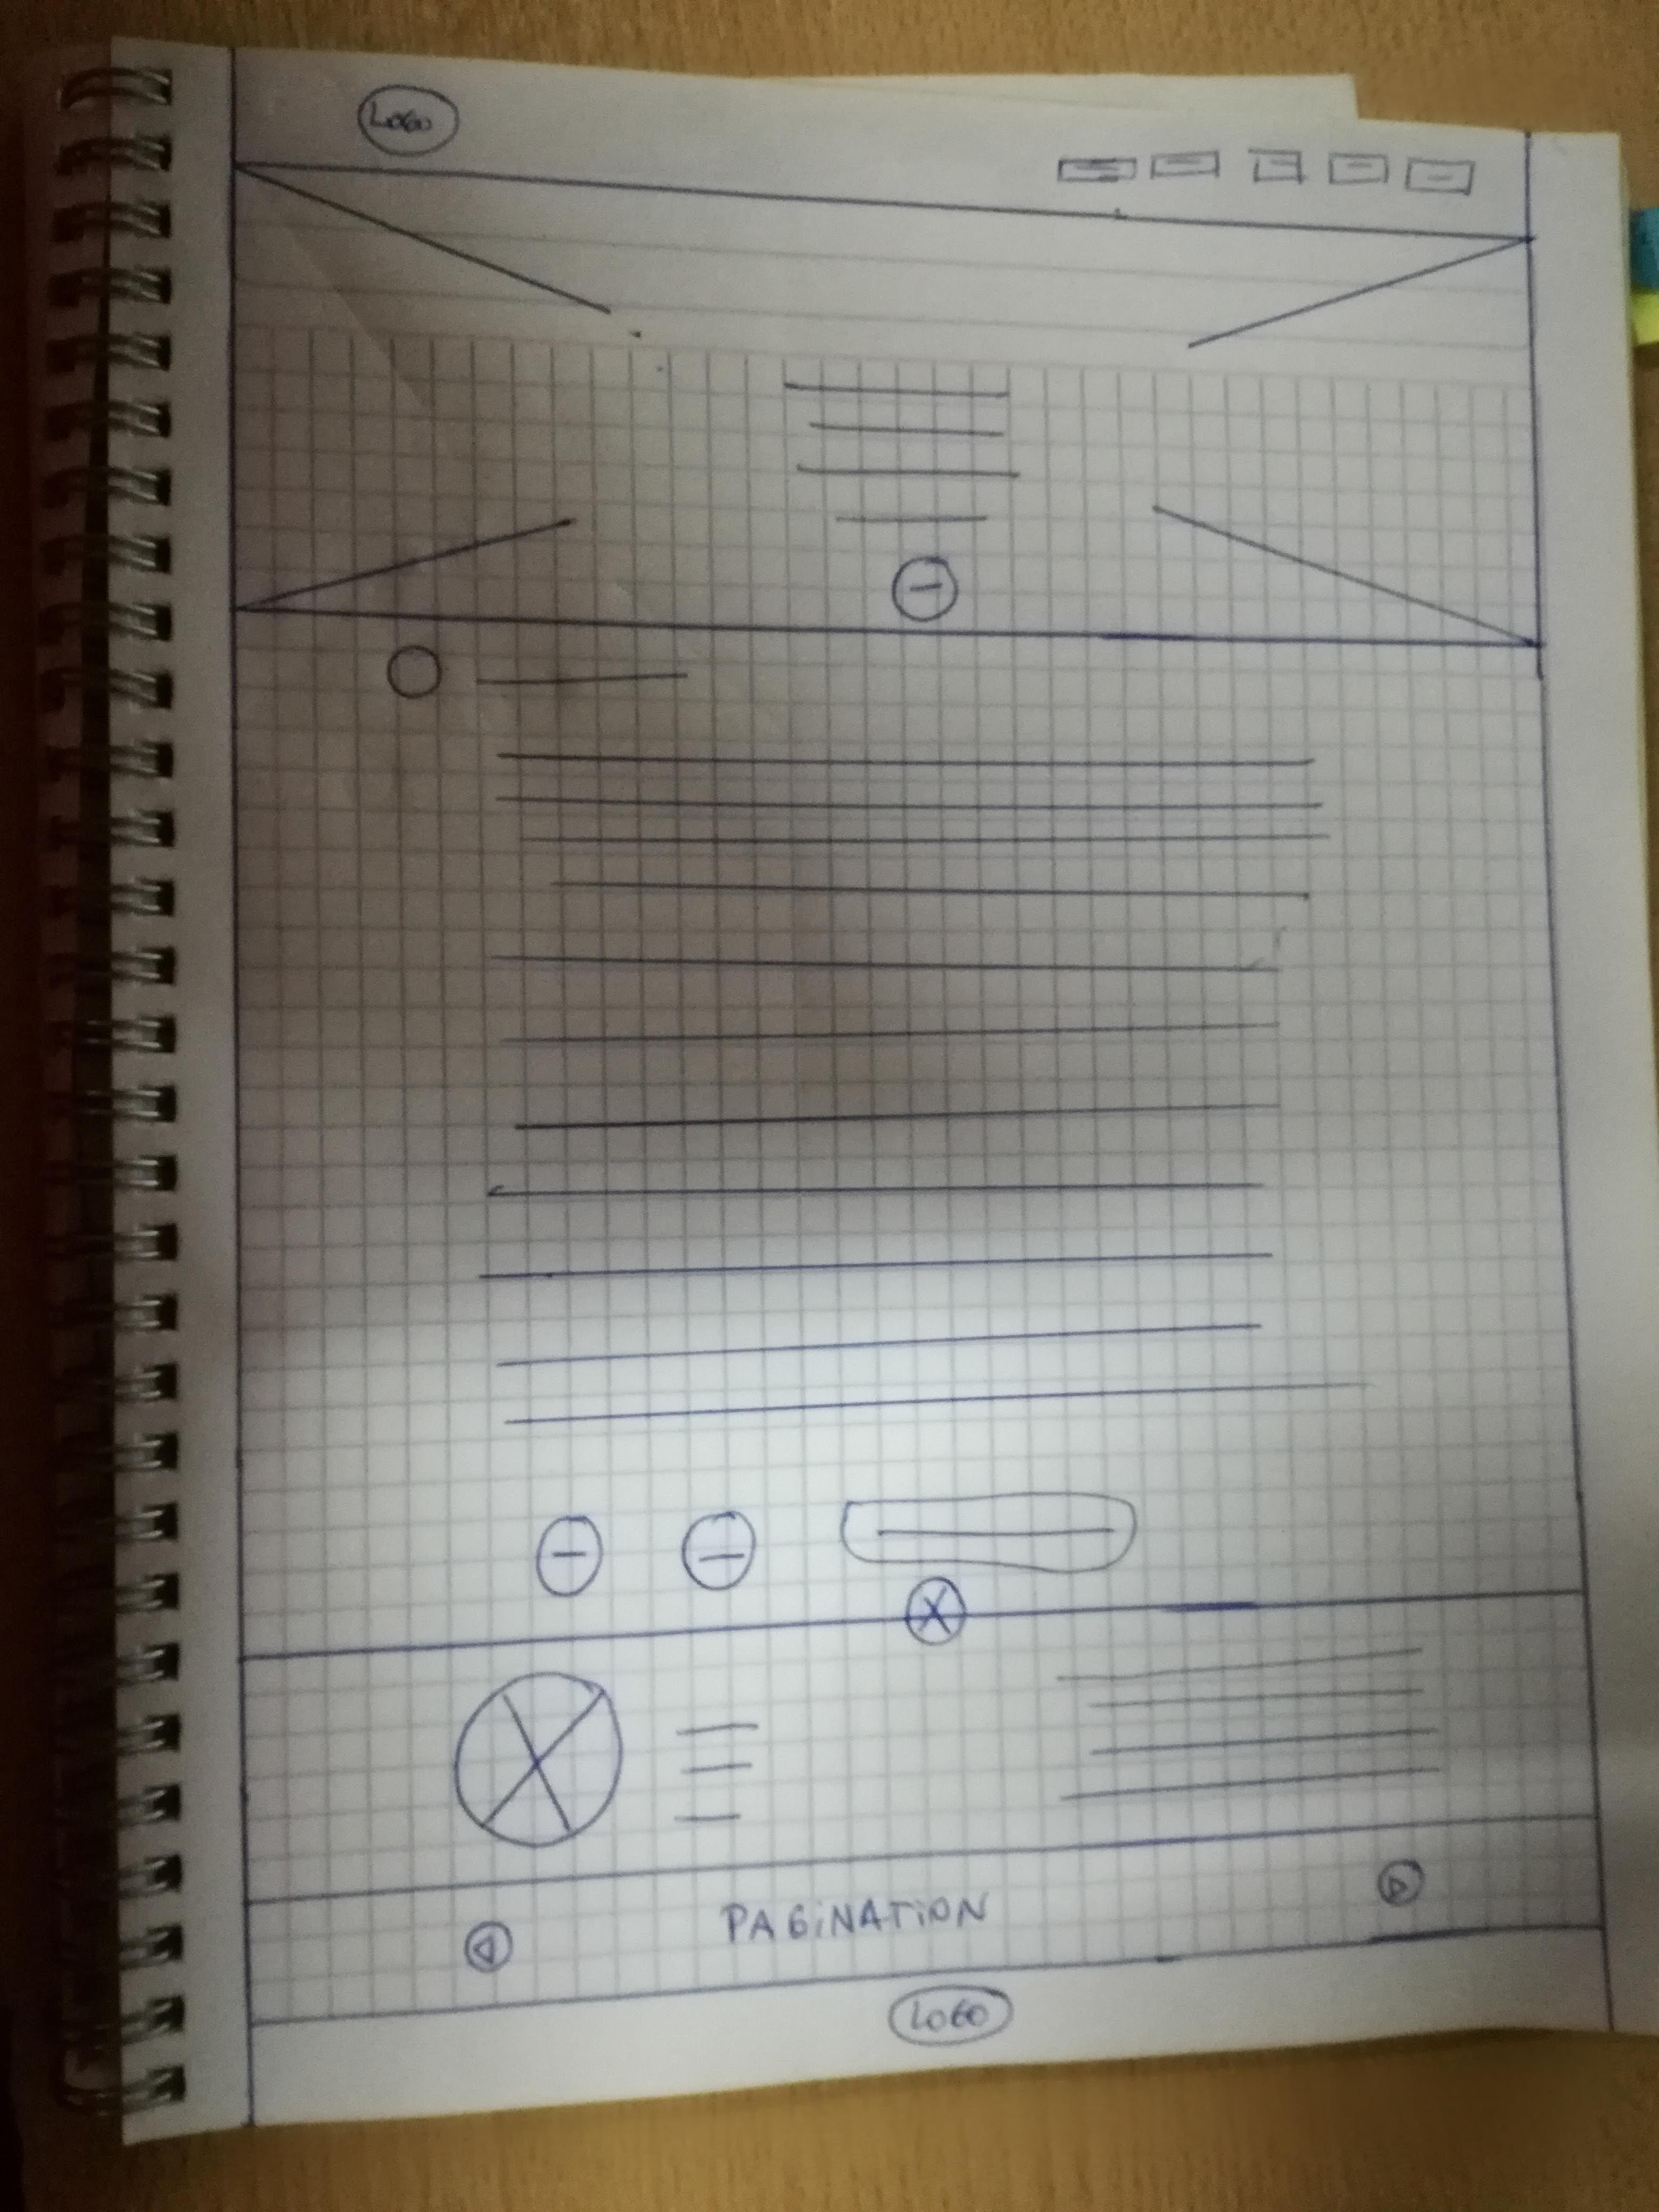 LOGO
PAGiNATiON
LOGO